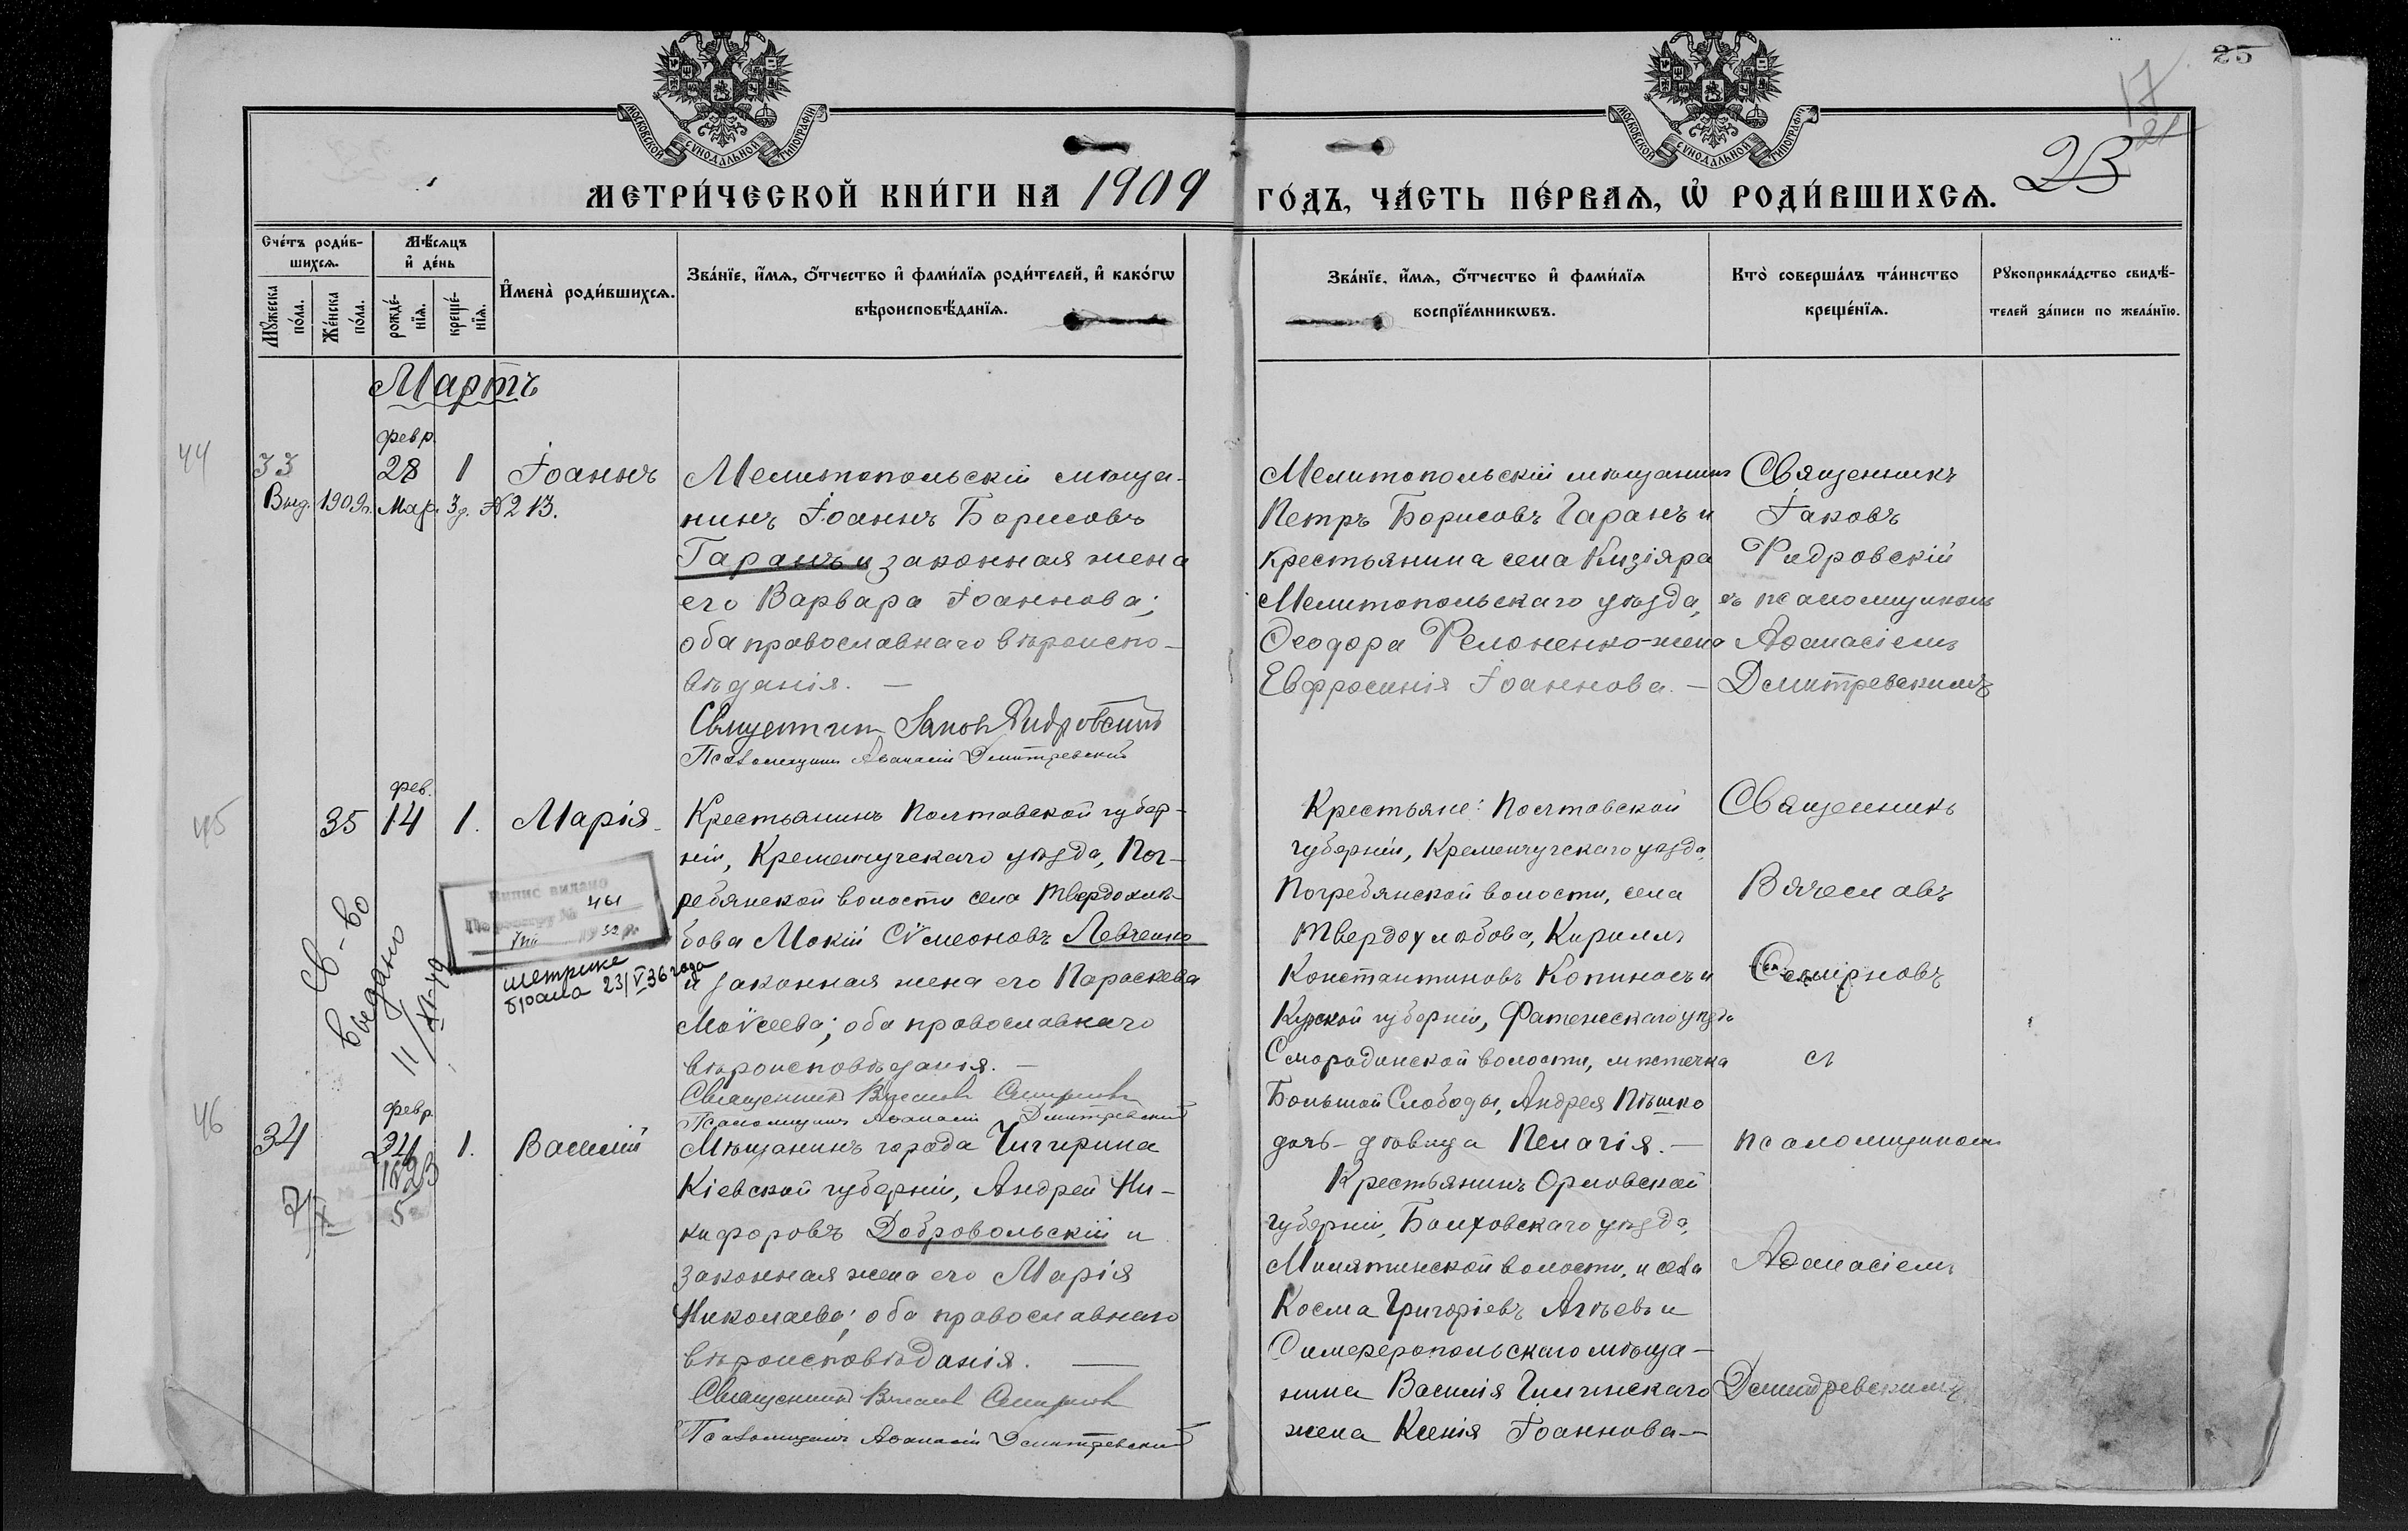 25
17
21
23
МОСКОВСКОЙ СУНОДАЛЬНОЙ ТИПОГРАФІИ
МОСКОВСКОЙ СУНОДАЛЬНОЙ ТИПОГРАФІИ
МЕТРИ́ЧЕСКОЙ КНИ́ГИ НА 1909 ГО́ДЪ, ЧА́СТЬ ПЕ́РВАЯ, Ѡ҆ РОДИ́ВШИХСѦ.
Сче́тъ роди́в-
шихсѧ.
Мꙋ́жеска по́ла.
Же́нска по́ла.
Мѣ́сѧцъ
и҆ де́нь
рожде́-
нїѧ.
креще́-
нїѧ.
И҆мена̀ роди́вшихсѧ.
Зва́нїе, и҆́мѧ, ѻ҆́тчество и҆ фами́лїѧ роди́телей, и҆ како́гѡ
вѣроисповѣ́данїѧ.
Зва́нїе, и҆́мѧ, ѻ҆́тчество и҆ фами́лїѧ
воспрїе́мникѡвъ.
Кто̀ соверша́лъ та́инство
креще́нїѧ.
Рꙋкоприкла́дство свидѣ́-
телей за́писи по жела́нїю.
Мартъ
44
февр.
33 28 1 Іоаннъ
Выд. 1909 г. Мар. 3 д. № 213.
Мелитопольскій мѣща-
нинъ Іоаннъ Борисовъ
Гаранъ и законная жена
его Варвара Іоаннова;
оба православнаго вѣроиспо-
вѣданія. —
Священникъ Іаковъ
Псаломщикъ Аѳанасій Дмитревскій
Мелитопольскій мѣщанинъ
Петръ Борисовъ Гаранъ и
крестьянина села Кизіяра
Мелитопольскаго уѣзда,
Ѳеодора жена
Евфросинія Іоаннова. —
Священникъ
Іаковъ
съ псаломщикомъ
Аѳанасіемъ
Дмитревскимъ
45
фев.
35 14 1. Марія
Св-во
выдано
11/XI-40
Випис видано
По реестру № 461
VIII 1932 р.
метрика
брала 23/V 36 года
Крестьянинъ Полтавской губер-
ніи, Кременчугскаго уѣзда, Пог-
ребянской волости села Твердохлѣ-
бова Мокій Сѵмеоновъ Левченко
и законная жена его Параскева
Моѵсеева; оба православнаго
вѣроисповѣданія. —
Священникъ Вячеславъ Смирновъ
Псаломщикъ Аѳанасій Дмитревскій
Крестьяне: Полтавской
губерніи, Кременчугскаго уѣзда,
Погребянской волости, села
Твердохлѣбова, Кириллъ
Константиновъ Копиносъ и
Курской губерніи, Фатежскаго уѣзда
Смородинской волости, мѣстечка
Большой Слободы, Андрея Пѣшко
дочь-дѣвица Пелагія. —
Священникъ
Вячеславъ
Смирновъ
съ
псаломщикомъ
Аѳанасіемъ
Дмитревскимъ
46
февр.
34 24 1. Василій
Мѣщанинъ города Чигирина
Кіевской губерніи, Андрей Ни-
кифоровъ Добровольскій и
законная жена его Марія
Николаева; оба православнаго
вѣроисповѣданія. —
Священникъ Вячеславъ Смирновъ
Псаломщикъ Аѳанасій Дмитревскій
Крестьянинъ Орловской
губерніи, Болховскаго уѣзда,
Милятинской волости, и села
Косма Григоріевъ Агѣевъ и
Симферопольскаго мѣща-
нина Василія
жена Ксенія Іоаннова —